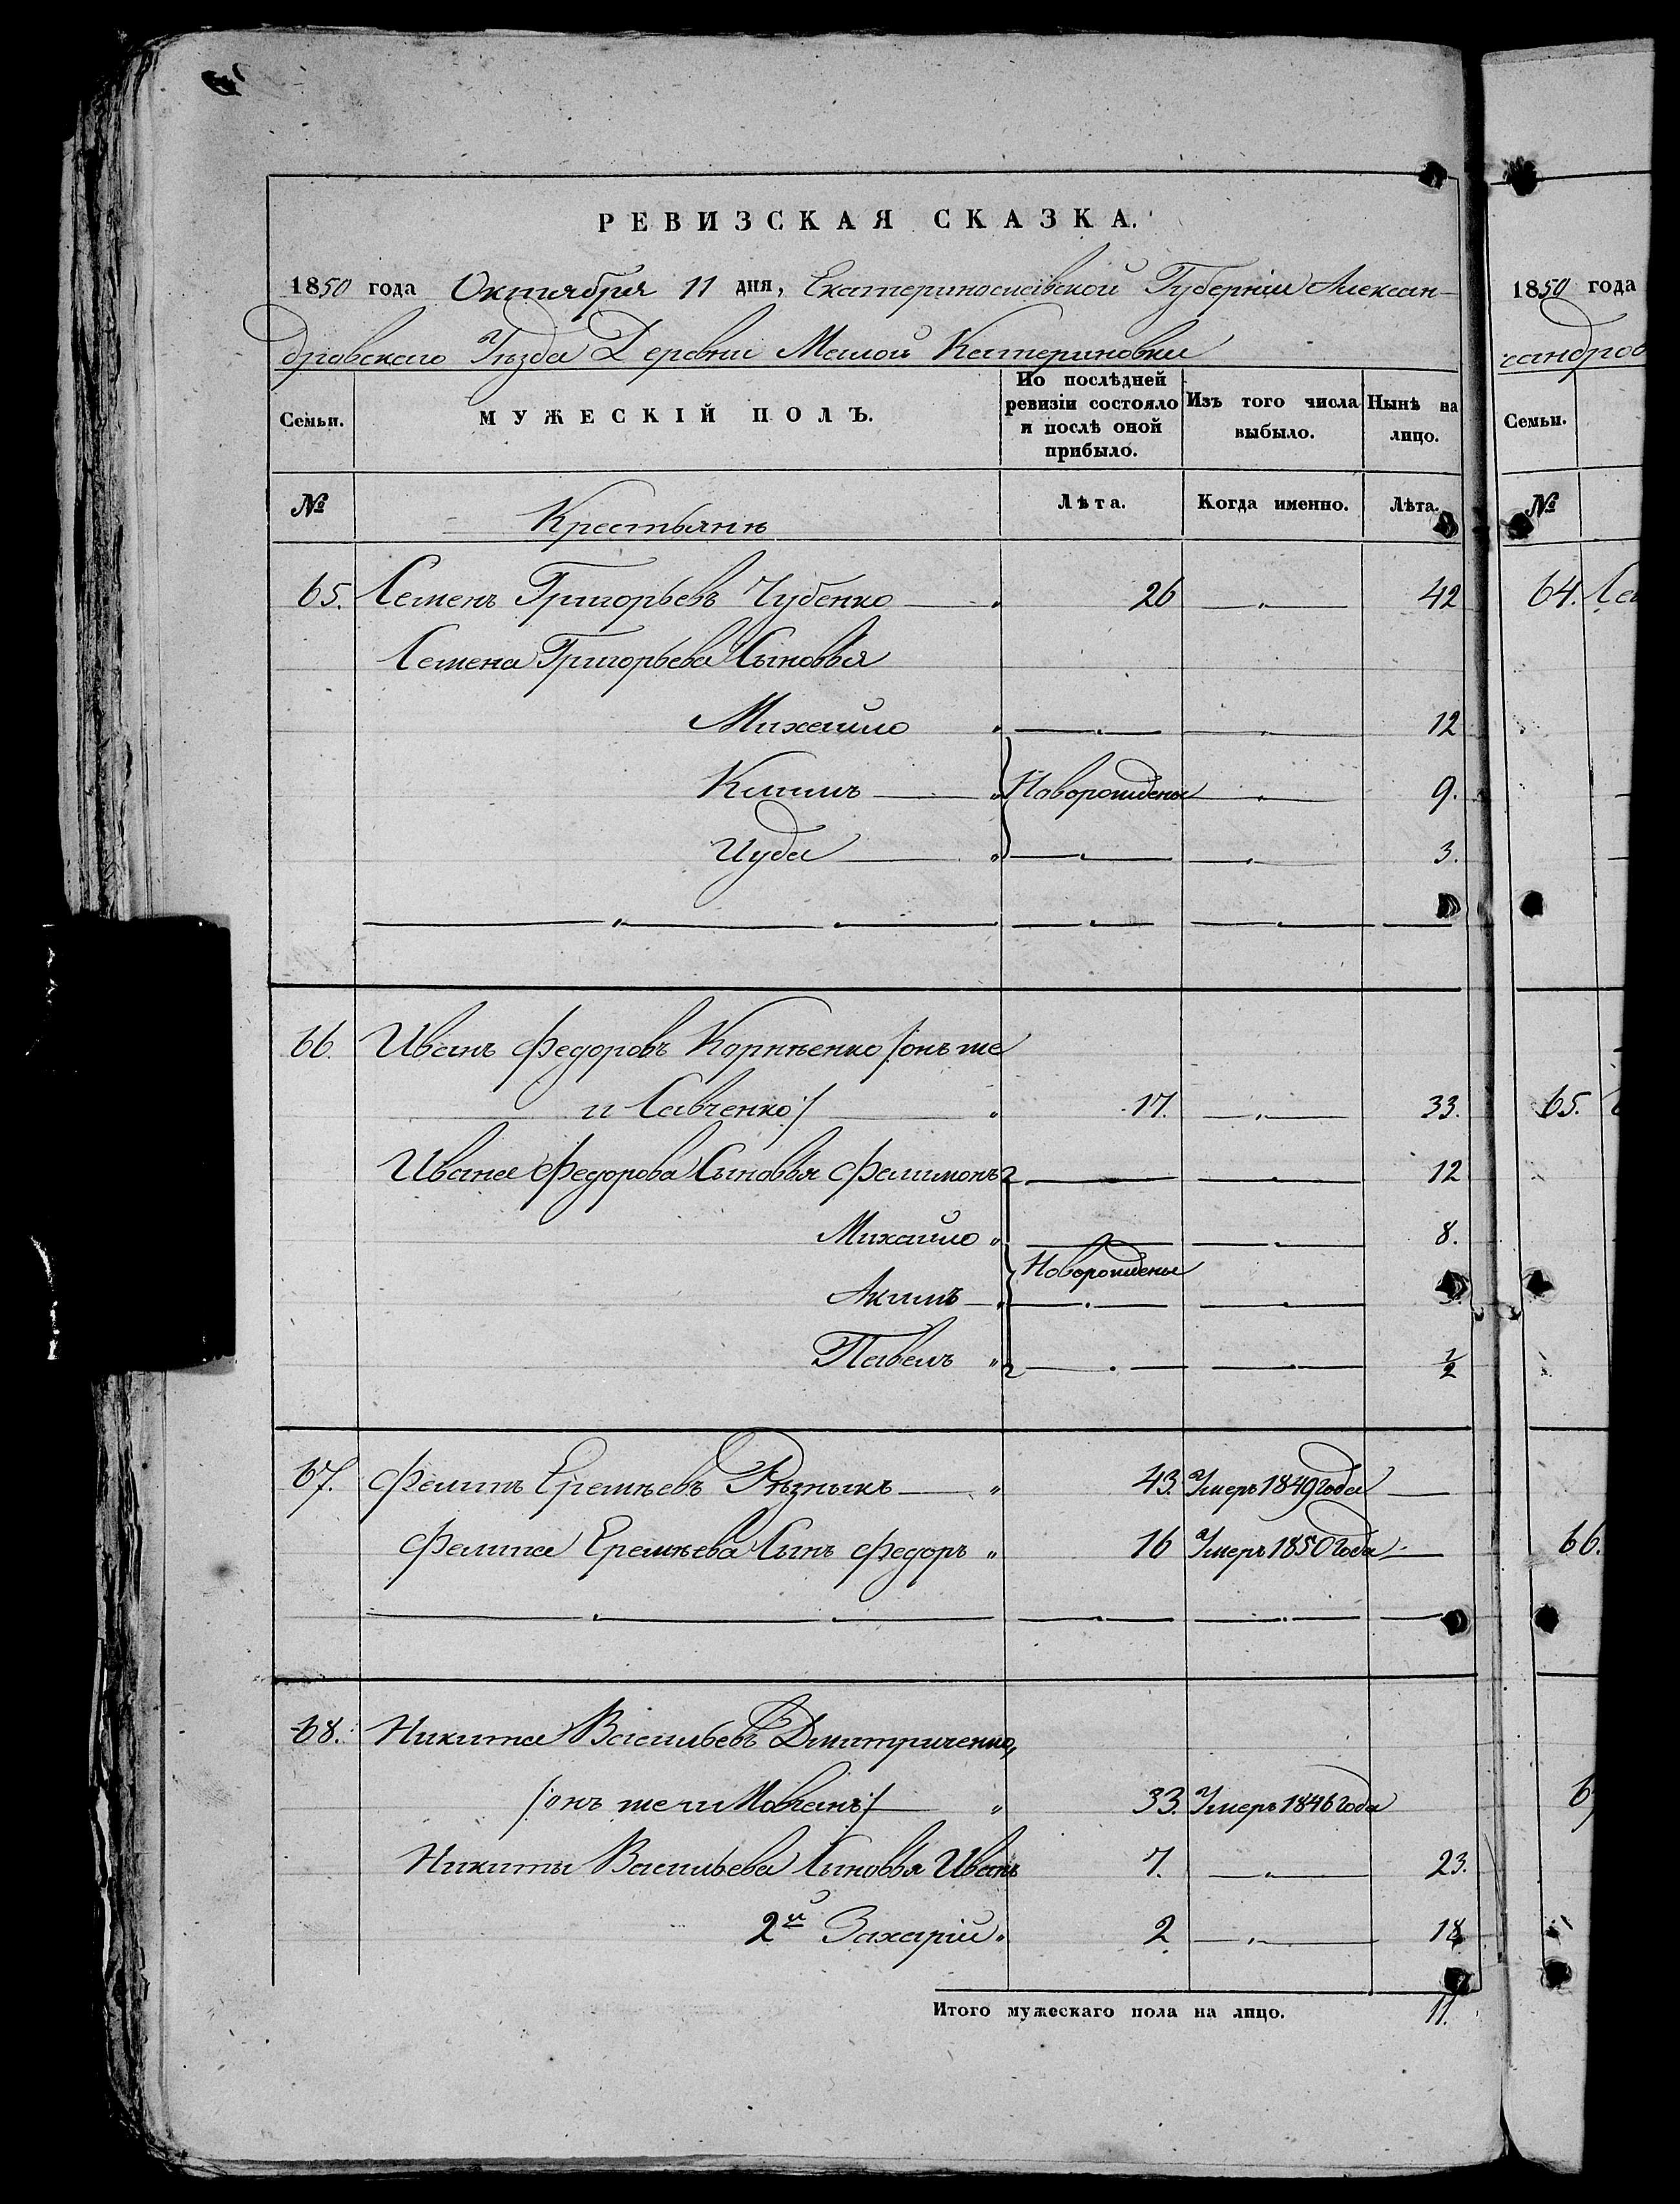 РЕВИЗСКАЯ СКАЗКА.
1850 года Октября 11 дня, Екатеринославской Губерніи Алексан-
дровскаго Уѣзда Деревни Малой Катериновки
Семьи. МУЖЕСКІЙ ПОЛЪ. По послѣдней ревизіи состояло и послѣ оной прибыло. Изъ того числа выбыло. Нынѣ на лицо.
№ Крестьянѣ Лѣта. Когда именно. Лѣта.
65. Семенъ Григорьевъ Чубенко 26 — 42
Семена Григорьева Сыновья
Михайло — — 12
Климъ Новорождены — 9.
Иуда — — 3.
66. Иванъ Федоровъ Корнѣенко /онъ же
и Савченко/ 17. — 33.
Ивана Федорова Сыновья Филимонъ — — 12
Михайло — — 8.
Новорождены
Акимъ — —
Павелъ — — 1/2
67. Филипъ Еремѣевъ Рѣзныкъ 43. Умеръ 1849 года —
Филипа Еремѣева Сынъ Федоръ 16 Умеръ 1850 года —
68. Никита Васильевъ Дмитриченко,
/онъ же и Мовчанъ/ 33. Умеръ 1846 года
Никиты Васильева Сыновья Иванъ 7. — 23.
2й Захарій 2 — 18
Итого мужескаго пола на лицо. 11.
1850 года
сандров
Семьи.
№
64. Се
65.
66.